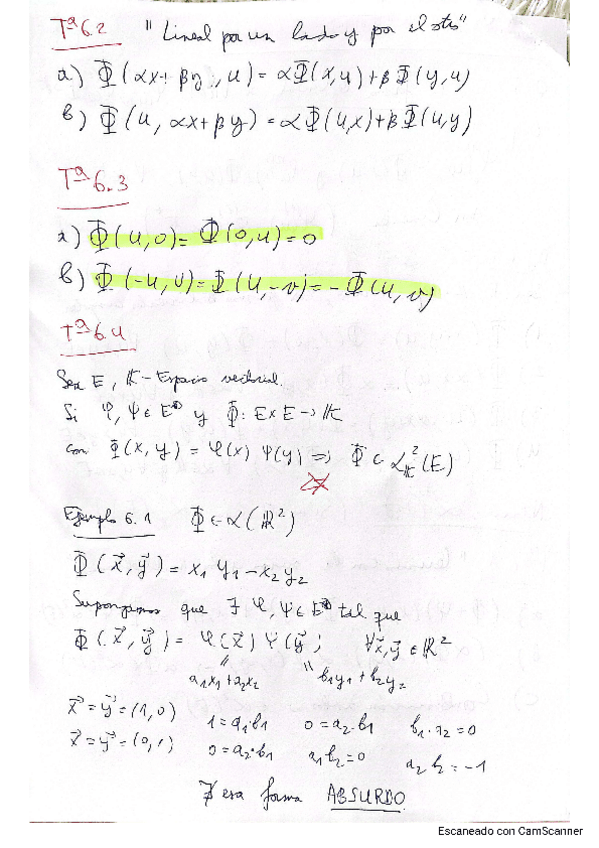 Tª 6.2 "Lineal por un lado y por el otro"
a) Φ(αx + βy, u) = αΦ(x,u) + βΦ(y,u)
b) Φ(u, αx + βy) = αΦ(u,x) + βΦ(u,y)
Tª 6.3
a) Φ(u,0) = Φ(0,u) = 0
b) Φ(-u,v) = Φ(u,-v) = -Φ(u,v)
Tª 6.4
Sea E, K-Espacio vectorial.
Si φ, ψ ∈ E* y Φ: E×E → K
con Φ(x,y) = φ(x) ψ(y) ⇒ Φ ∈ ℒ²_K(E)
⇍
Ejemplo 6.1 Φ ∈ ℒ(ℝ²)
Φ(x⃗, y⃗) = x₁ y₁ - x₂ y₂
Supongamos que ∃ φ, ψ ∈ E* tal que
Φ(x⃗, y⃗) = φ(x⃗) ψ(y⃗); ∀x⃗, y⃗ ∈ ℝ²
a₁x₁ + a₂x₂ b₁y₁ + b₂y₂
x⃗ = y⃗ = (1,0) 1 = a₁·b₁ 0 = a₂·b₁ b₁·a₂ = 0
x⃗ = y⃗ = (0,1) 0 = a₂·b₁ a₁b₂ = 0 a₂b₂ = -1
∄ esa forma ABSURDO
Escaneado con CamScanner